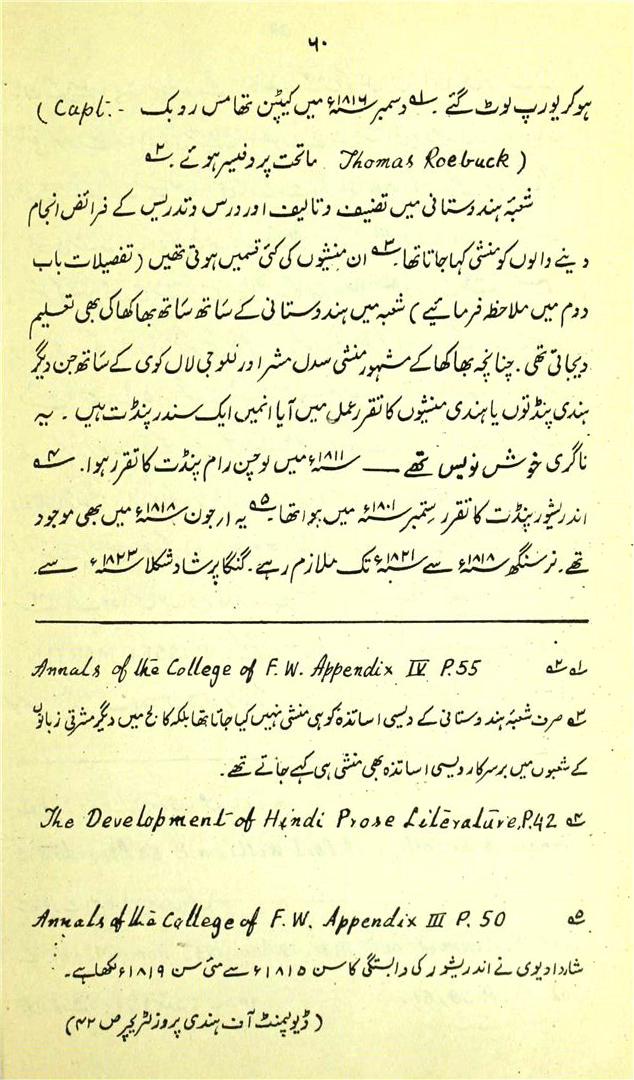 ۶۰
ہوکر یورپ لوٹ گئے ۔ ؎۱ دسمبر ۱۸۱۶ء میں کیپٹن تھامس روبک (Capt. -
Thomas Roebuck) ماتحت پروفیسر ہوئے ۔ ؎۲
شعبۂ ہندوستانی میں تصنیف و تالیف اور درس و تدریس کے فرائض انجام
دینے والوں کو منشی کہا جاتا تھا ۔ ؎۳ ان منشیوں کی کئی قسمیں ہوتی تھیں (تفصیلات باب
دوم میں ملاحظہ فرمائیے) شعبہ میں ہندوستانی کے ساتھ ساتھ بھاکھا کی بھی تعلیم
دیجاتی تھی ۔ چنانچہ بھاکھا کے مشہور منشی سدل مشر اور للوجی لال کوی کے ساتھ جن دیگر
ہندی پنڈتوں یا ہندی منشیوں کا تقرر عمل میں آیا انمیں ایک سندر پنڈت ہیں ۔ یہ
ناگری خوش نویس تھے — ۱۸۱۱ء میں لوچن رام پنڈت کا تقرر ہوا ۔ ؎۴
اندریشور پنڈت کا تقرر ستمبر ۱۸۰۱ء میں ہوا تھا ۔ ؎۵ یہ ارجون ۱۸۱۸ء میں بھی موجود
تھے ۔ نرسنگھ ۱۸۱۸ء سے ۱۸۲۱ء تک ملازم رہے ۔ گنگا پرشاد شکلا ۱۸۲۳ء سے
؎۱ ؎۲ Annals of the College of F. W. Appendix IV P. 55
؎۳ صرف شعبۂ ہندوستانی کے دیسی اساتذہ کو ہی منشی نہیں کہا جاتا تھا بلکہ کالج میں دیگر مشرقی زبانوں
کے شعبوں میں برسرکار دیسی اساتذہ بھی منشی ہی کہے جاتے تھے ۔
؎۴ The Development of Hindi Prose Literature, P. 42
؎۵ Annals of the College of F. W. Appendix III P. 50
شاردا دیوی نے اندریشور کی وابستگی کا سن ۱۸۱۵ء سے مئی سن ۱۸۱۹ء لکھا ہے ۔
(ڈیولپمنٹ آف ہندی پروز لٹریچر ص ۴۲)